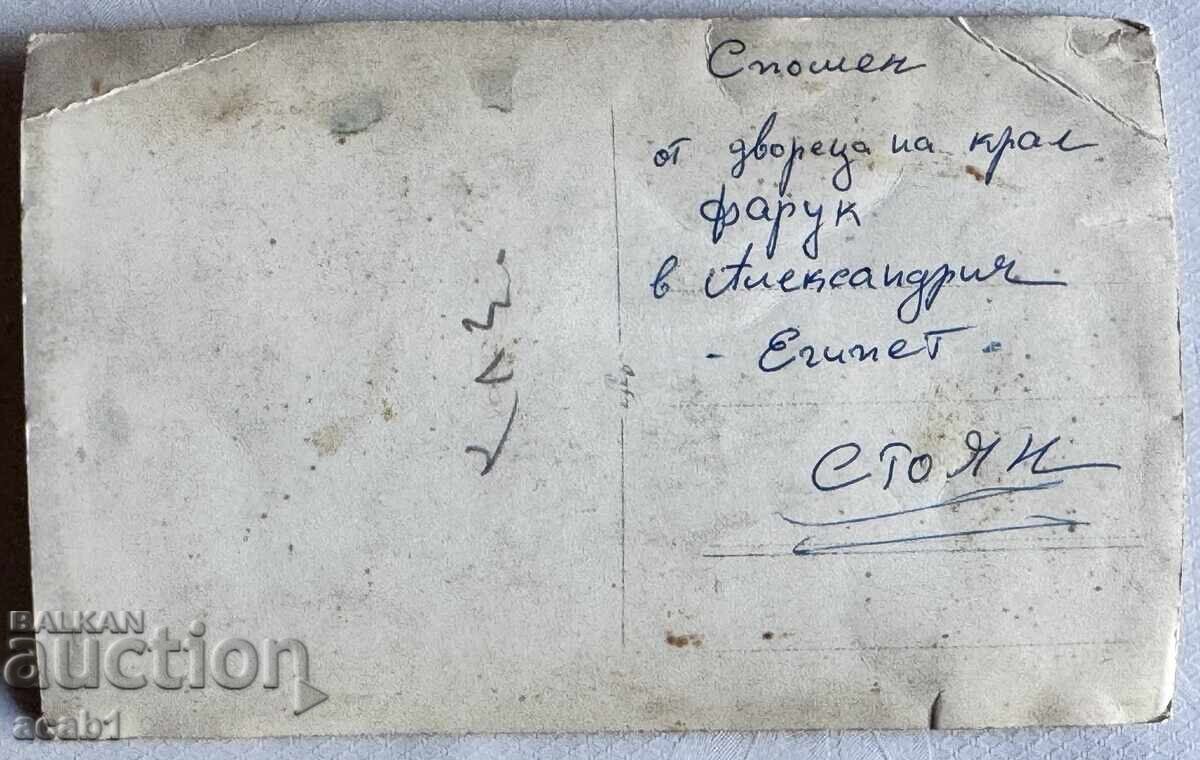 Спомен
от двореца на крал
фарук
в Александрия
- Египет -
СТОЯН
BALKAN
auction
acab1